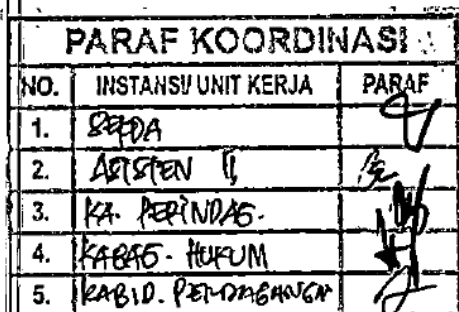 PARAF KOORDINASI
NO. INSTANSI/ UNIT KERJA PARAF
1. SEKDA
2. ASISTEN II
3. KA. PERINDAG.
4. KABAG. HUKUM
5. KABID. PERDAGANGAN